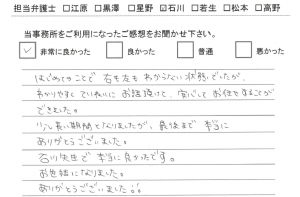 担当弁護士 □江原 □黒澤 □星野 ☑石川 □若生 □松本 □高野
当事務所をご利用になったご感想をお聞かせ下さい。
☑ 非常に良かった □ 良かった □ 普通 □ 悪かった
はじめてのことで右も左もわからない状態でしたが、
わかりやすくていねいにお話頂けて、安心してお任せすることが
できました。
少し長い期間となりましたが、最後まで本当に
ありがとうございました。
石川先生で本当に良かったです。
お世話になりました。
ありがとうございました!!